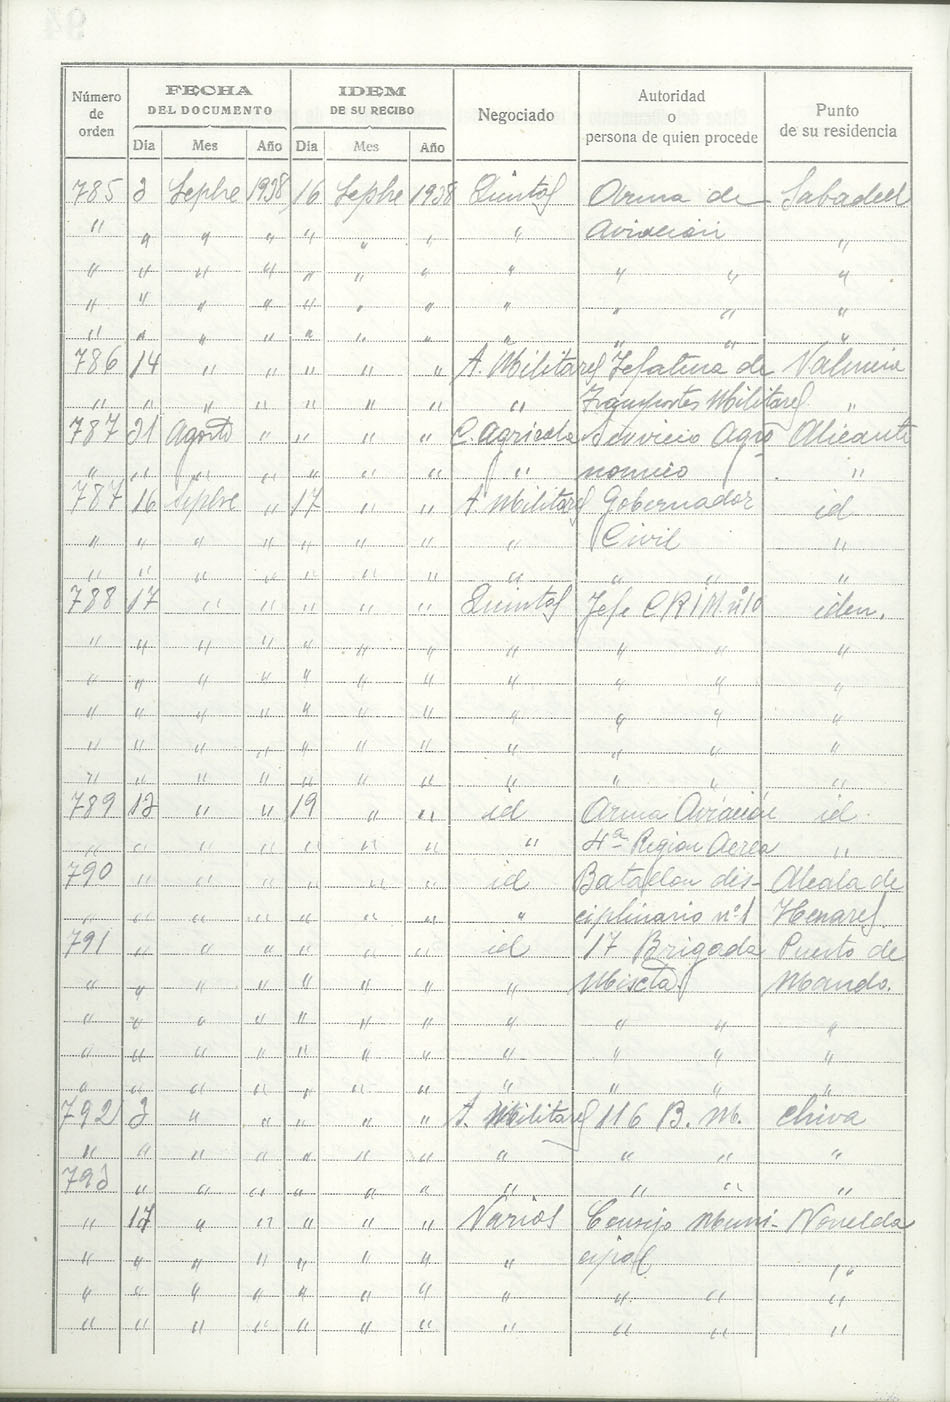 Número de orden | FECHA DEL DOCUMENTO | IDEM DE SU RECIBO | Negociado | Autoridad o persona de quien procede | Punto de su residencia
Día | Mes | Año | Día | Mes | Año
785 3 Sepbre 1938 16 Sepbre 1938 Quintas Arma de Sabadell
" " " " " " " " Aviación "
" " " " " " " " " " "
" " " " " " " " " " "
" " " " " " " " " " "
786 14 " " " " " A. Militares Jefatura de Valencia
" " " " " " " " Transportes Militares "
787 31 Agosto " " " " C. Agrícola Servicio Agro Alicante
" " " " " " " " nomico "
787 16 Sepbre " 17 " " A. Militares Gobernador id
" " " " " " " " Civil "
" " " " " " " " " " "
788 17 " " " " " Quintas Jefe C R I M. nº 10 iden.
" " " " " " " " " " "
" " " " " " " " " " "
" " " " " " " " " " "
" " " " " " " " " " "
" " " " " " " " " " "
789 13 " " 19 " " id Arma Aviación id.
" " " " " " " " 4ª Region Aerea "
790 " " " " " " id Batallon dis- Alcala de
" " " " " " " " ciplinario nº 1 Henares
791 " " " " " " id 17 Brigada Puesto de
" " " " " " " " Mixta. Mando.
" " " " " " " " " " "
" " " " " " " " " " "
" " " " " " " " " " "
792 3 " " " " " A. Militares 116 B. M. Chiva
" " " " " " " " " " "
793 " " " " " " " " " "
" 17 " " " " " Varios Consejo Muni- Novelda
" " " " " " " " cipal "
" " " " " " " " " " "
" " " " " " " " " " "